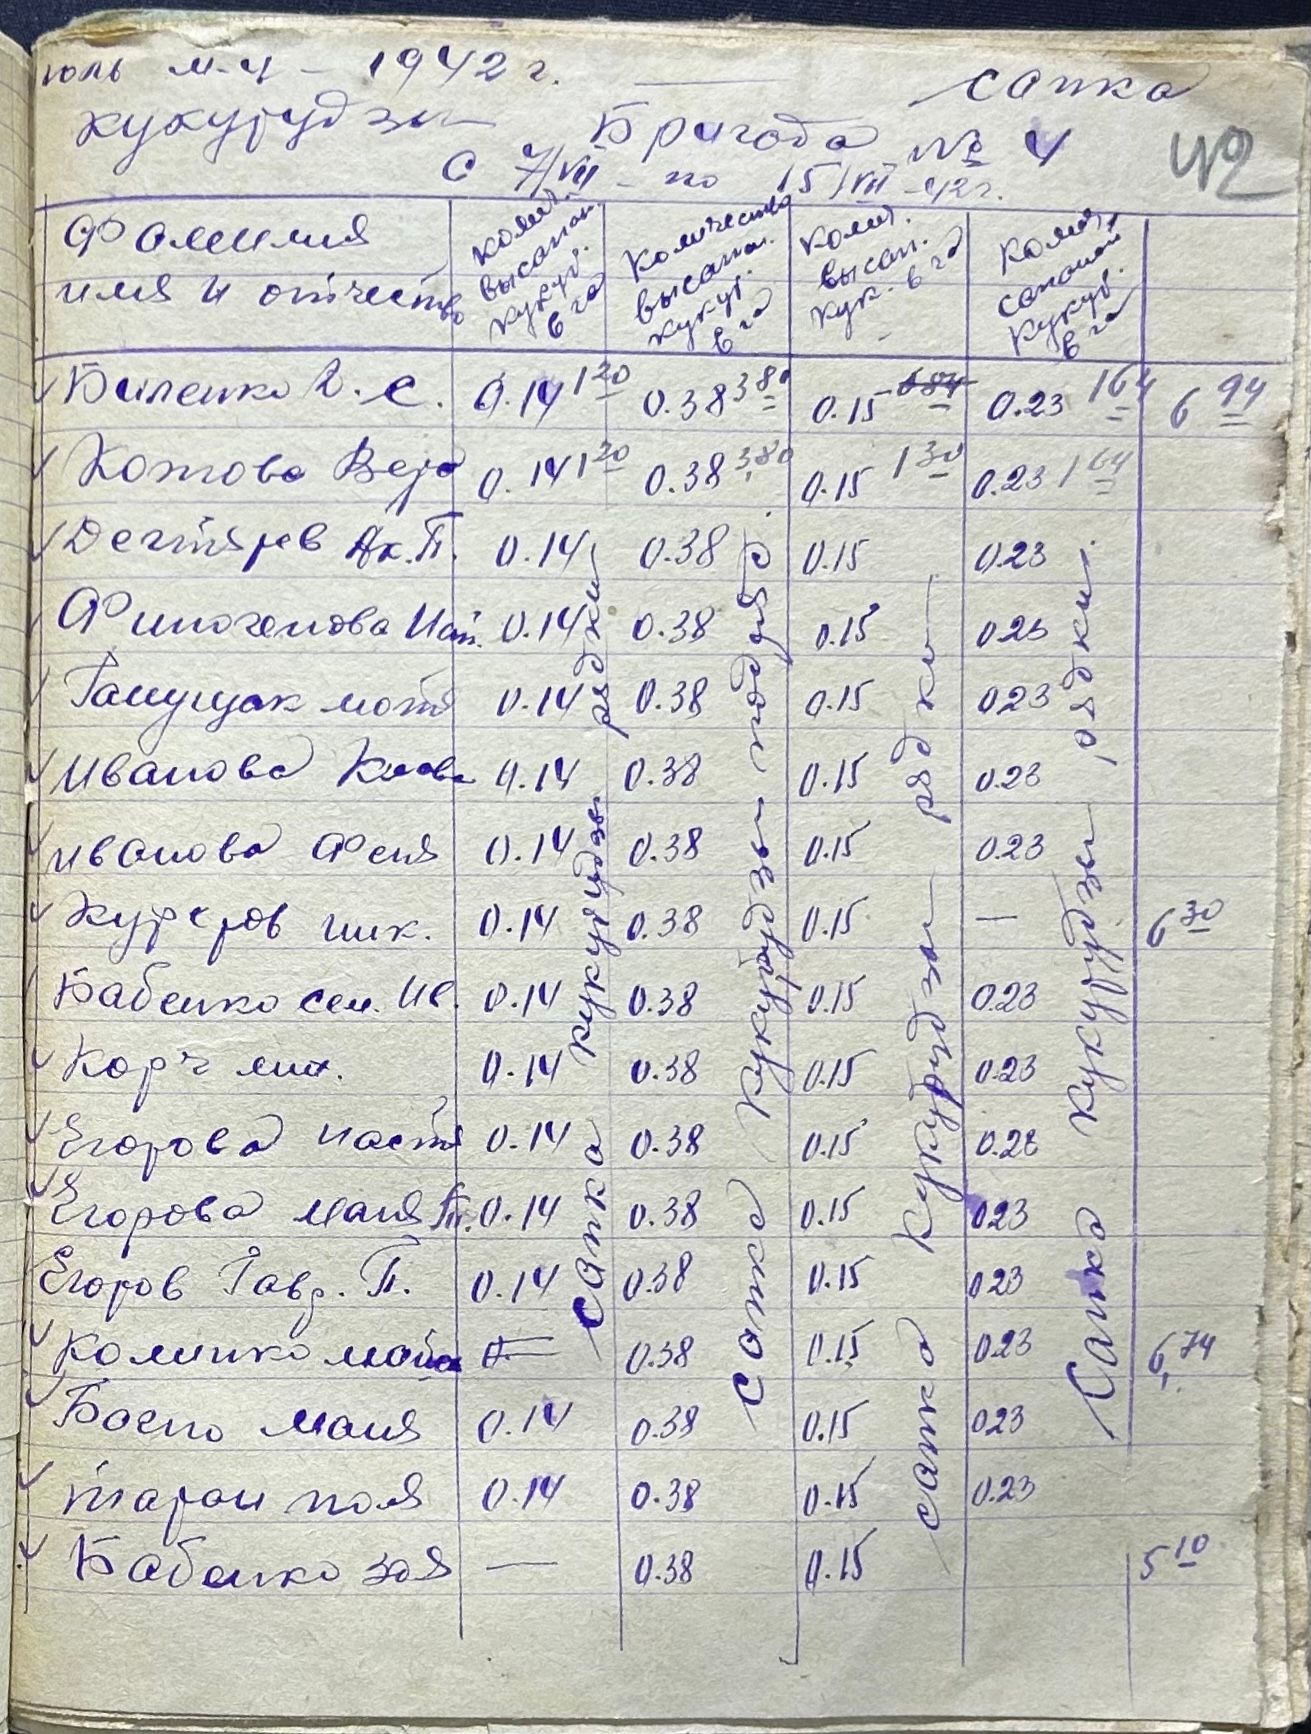 юль м-ц - 1942 г. — сапка
кукурудзы Бригада № 4
42
с 7/VII - по 15/VII -42 г.
Фамилия
имя и отчество
колич. высапан. кукур. в га
Количество высапан. кукур. в га
колич. высап. кук. в га
колич. сапаной кукур. в га
Биленко 0.14 1 20 0.38 3 80 0.15 6 84 0.23 1 64 6 94
Котова Вера 0.14 1 20 0.38 3,80 0.15 1 30 0.23 1 64
Дегтярев Ак. П. 0.14 0.38 0.15 0.23
Финогенова 0.14 0.38 0.15 0.23
Ганущак мотя 0.14 0.38 0.15 0.23
Иванова Клава 0.14 0.38 0.15 0.23
Иванова Феня 0.14 0.38 0.15 0.23
ник. 0.14 0.38 0.15 — 6 30
Бабенко сем. Ив. 0.14 0.38 0.15 0.23
Корч мих. 0.14 0.38 0.15 0.23
Егорова настя 0.14 0.38 0.15 0.23
Егорова маня П. 0.14 0.38 0.15 0.23
Егоров Гавр. П. 0.14 0.38 0.15 0.23
Калинко — 0.38 0.15 0.23 6,74
маня 0.14 0.38 0.15 0.23
Таран поля 0.14 0.38 0.15 0.23
Бабенко зоя — 0.38 0.15 5 10
сапка кукурудзы рядки
сапка кукурудзы подряд
сапка кукурудзы рядки
Сапка кукурудзы рядки.